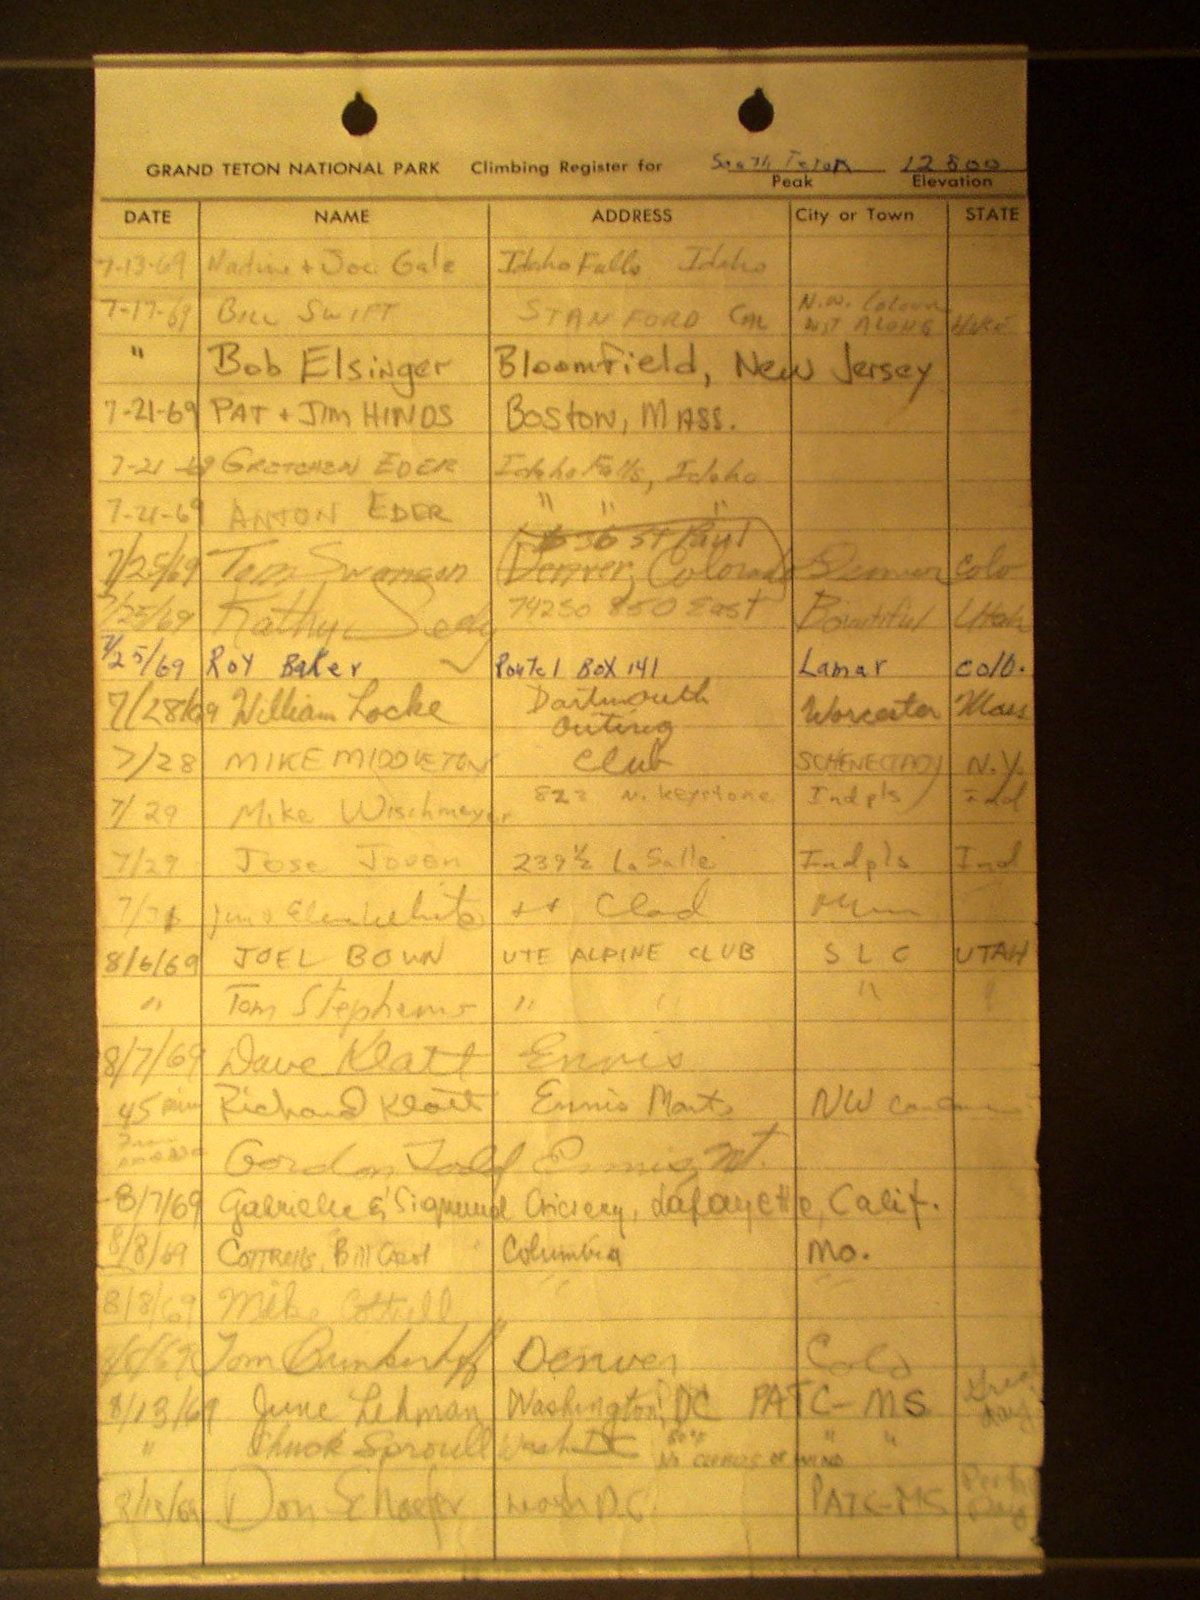 GRAND TETON NATIONAL PARK Climbing Register for South Teton 12800
Peak Elevation
DATE NAME ADDRESS City or Town STATE
7-13-69 Nadine + Joe Gale Idaho Falls Idaho
7-17-69 BILL SWIFT STANFORD CAL N.W.
" Bob Elsinger Bloomfield, New Jersey
7-21-69 PAT + JIM HINDS BOSTON, MASS.
7-21-69 GRETCHEN EDER Idaho Falls, Idaho
7-21-69 ANTON EDER " " "
7/25/69 Tom Swanson Denver, Colorado Denver Colo
7/25/69 Kathy 850 East Bountiful Utah
7/25/69 Roy Baker Route 1 Box 141 Lamar Colo.
7/28/69 William Locke Dartmouth Outing Worcester Mass
7/28 MIKE MIDDLETON Club SCHENECTADY N.Y.
7/29 Mike Wischmeyer 823 N. Keystone Indpls Ind
7/29 Jose Joven 239½ LaSalle Indpls Ind
8/6/69 JOEL BOWN UTE ALPINE CLUB S L C UTAH
" Tom Stephens " " " "
8/7/69 Dave Klatt Ennis
45 min Richard Klatt Ennis Mont NW
Gordon Todd Ennis, Mt.
8/7/69 Gabrielle & Sigmund Lafayette, Calif.
8/8/69 COTTRELLS, Bill Columbia Mo.
8/8/69 Mike Cottrell " "
Tom Denver Colo
8/13/69 June Lehman Washington, DC PATC-MS
" Chuck Sproull Wash DC " "
8/13/69 Don Schaefer Wash D.C. PATC-MS Perfect Day